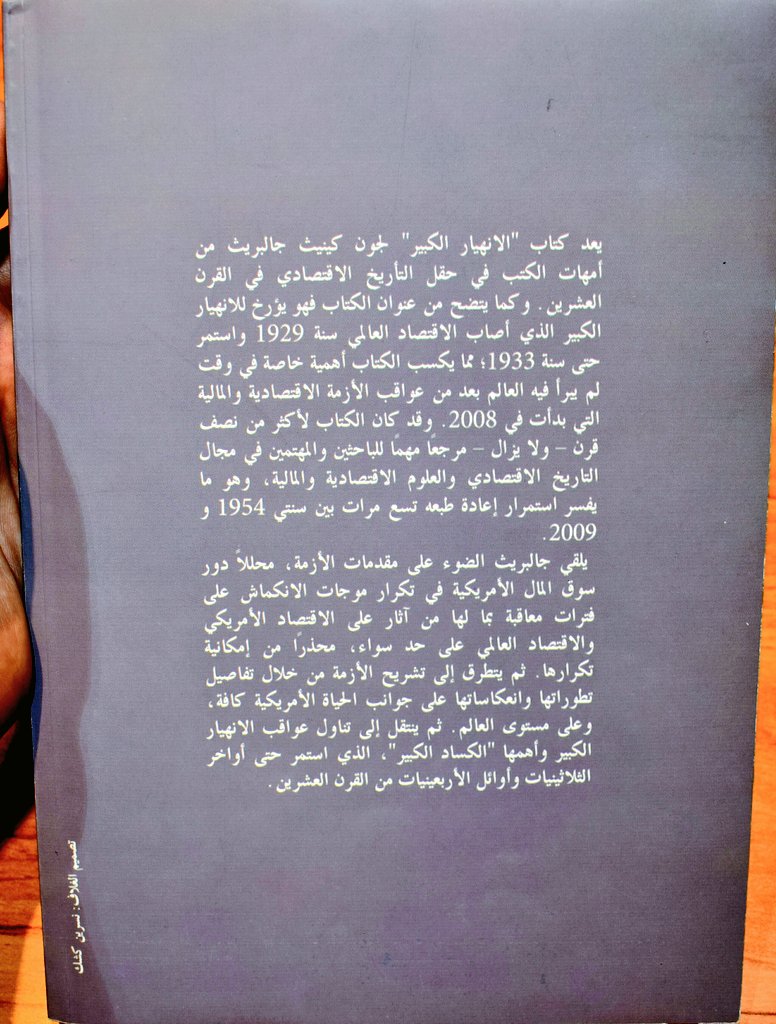 يعد كتاب "الانهيار الكبير" لجون كينيث جالبريث من
أمهات الكتب في حقل التأريخ الاقتصادي في القرن
العشرين. وكما يتضح من عنوان الكتاب فهو يؤرخ للانهيار
الكبير الذي أصاب الاقتصاد العالمي سنة 1929 واستمر
حتى سنة 1933؛ مما يكسب الكتاب أهمية خاصة في وقت
لم يبرأ فيه العالم بعد من عواقب الأزمة الاقتصادية والمالية
التي بدأت في 2008. وقد كان الكتاب لأكثر من نصف
قرن – ولا يزال – مرجعًا مهمًا للباحثين والمهتمين في مجال
التاريخ الاقتصادي والعلوم الاقتصادية والمالية، وهو ما
يفسر استمرار إعادة طبعه تسع مرات بين سنتي 1954 و
2009.
يلقي جالبريث الضوء على مقدمات الأزمة، محللاً دور
سوق المال الأمريكية في تكرار موجات الانكماش على
فترات معاقبة بما لها من آثار على الاقتصاد الأمريكي
والاقتصاد العالمي على حد سواء، محذرًا من إمكانية
تكرارها. ثم يتطرق إلى تشريح الأزمة من خلال تفاصيل
تطوراتها وانعكاساتها على جوانب الحياة الأمريكية كافة،
وعلى مستوى العالم. ثم ينتقل إلى تناول عواقب الانهيار
الكبير وأهمها "الكساد الكبير"، الذي استمر حتى أواخر
الثلاثينيات وأوائل الأربعينيات من القرن العشرين.
تصميم الغلاف: نسرين كشك